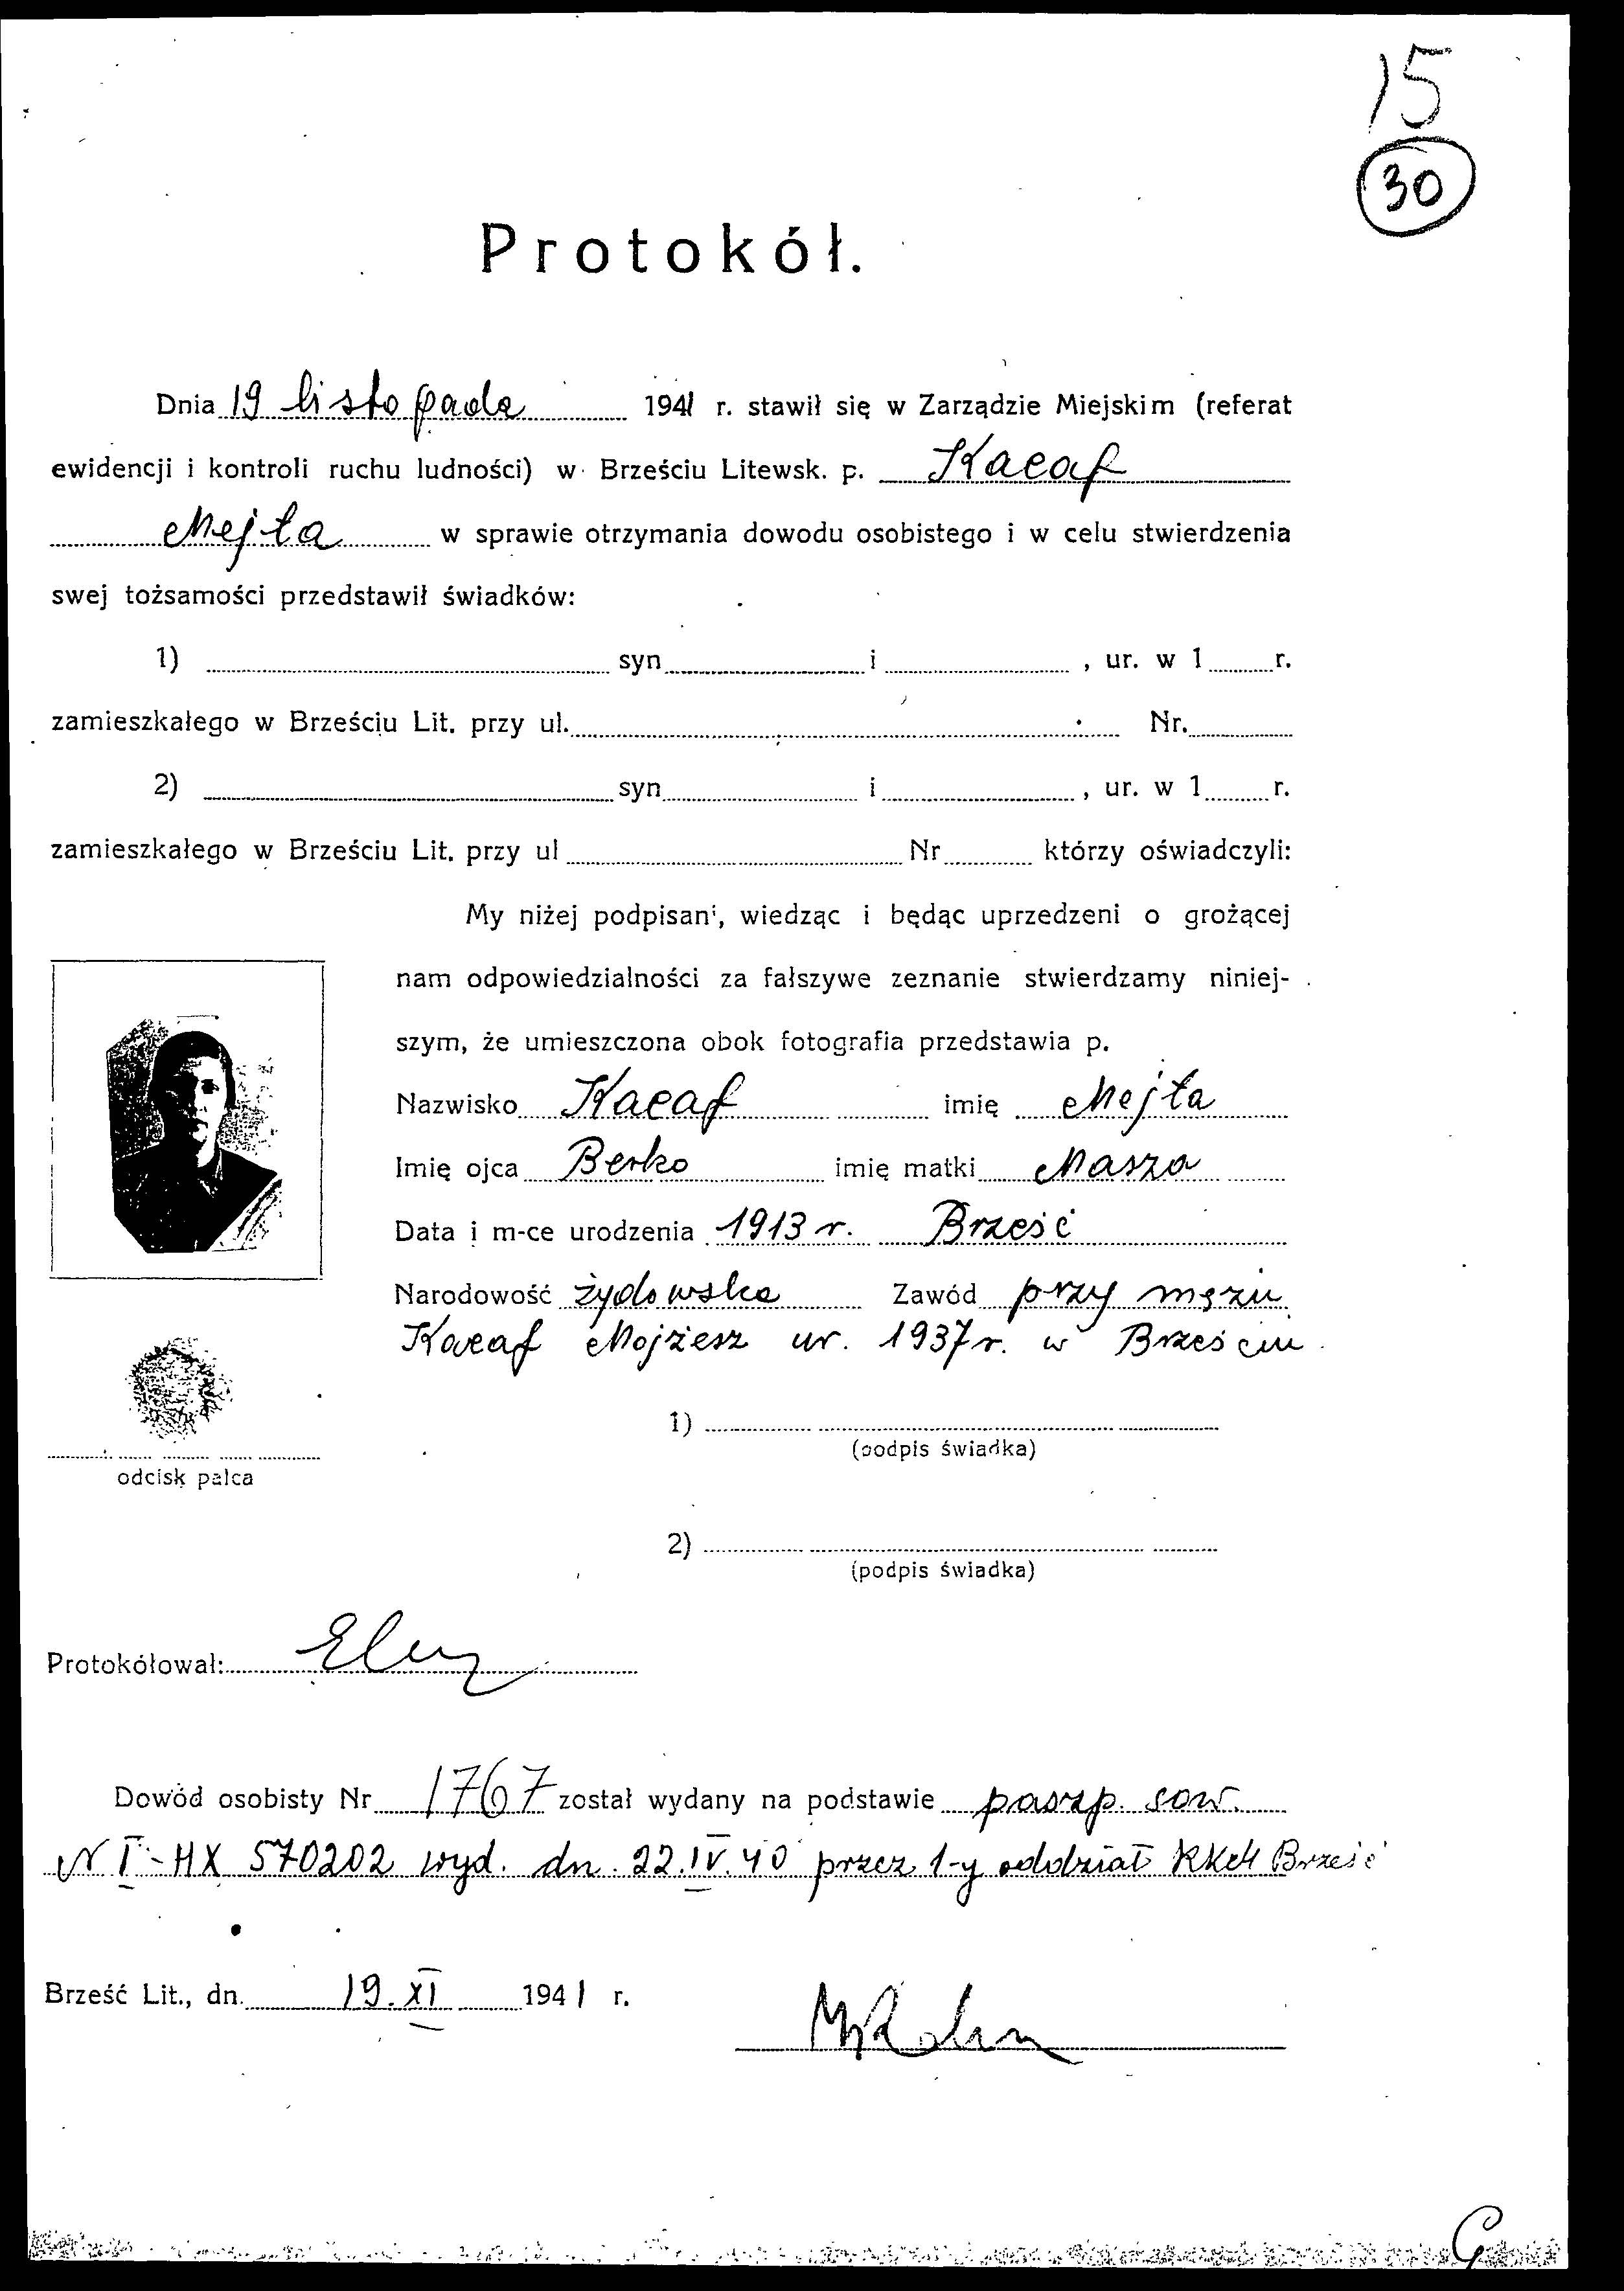 15
30
Protokół.
Dnia 19 listopada 1941 r. stawił się w Zarządzie Miejskim (referat
ewidencji i kontroli ruchu ludności) w Brześciu Litewsk. p. Kacaf
Mejta w sprawie otrzymania dowodu osobistego i w celu stwierdzenia
swej tożsamości przedstawił świadków:
1) syn i , ur. w 1 r.
zamieszkałego w Brześciu Lit. przy ul. Nr.
2) syn i , ur. w 1 r.
zamieszkałego w Brześciu Lit. przy ul Nr którzy oświadczyli:
My niżej podpisani, wiedząc i będąc uprzedzeni o grożącej
nam odpowiedzialności za fałszywe zeznanie stwierdzamy niniej-
szym, że umieszczona obok fotografia przedstawia p.
Nazwisko Kacaf imię Mejta
Imię ojca Berko imię matki Masza
Data i m-ce urodzenia 1913 r. Brześć
Narodowość żydowska Zawód przy mężu
Kacaf Mojżesz ur. 1937 r. w Brześciu
1)
(podpis świadka)
odcisk palca
2)
(podpis świadka)
Protokółował:
Dowód osobisty Nr 1767 został wydany na podstawie paszp. sow.
N I-HX 570202 wyd. dn. 22.IV.40 przez 1-y oddział RKM Brześć
Brześć Lit., dn. 19.XI 1941 r.